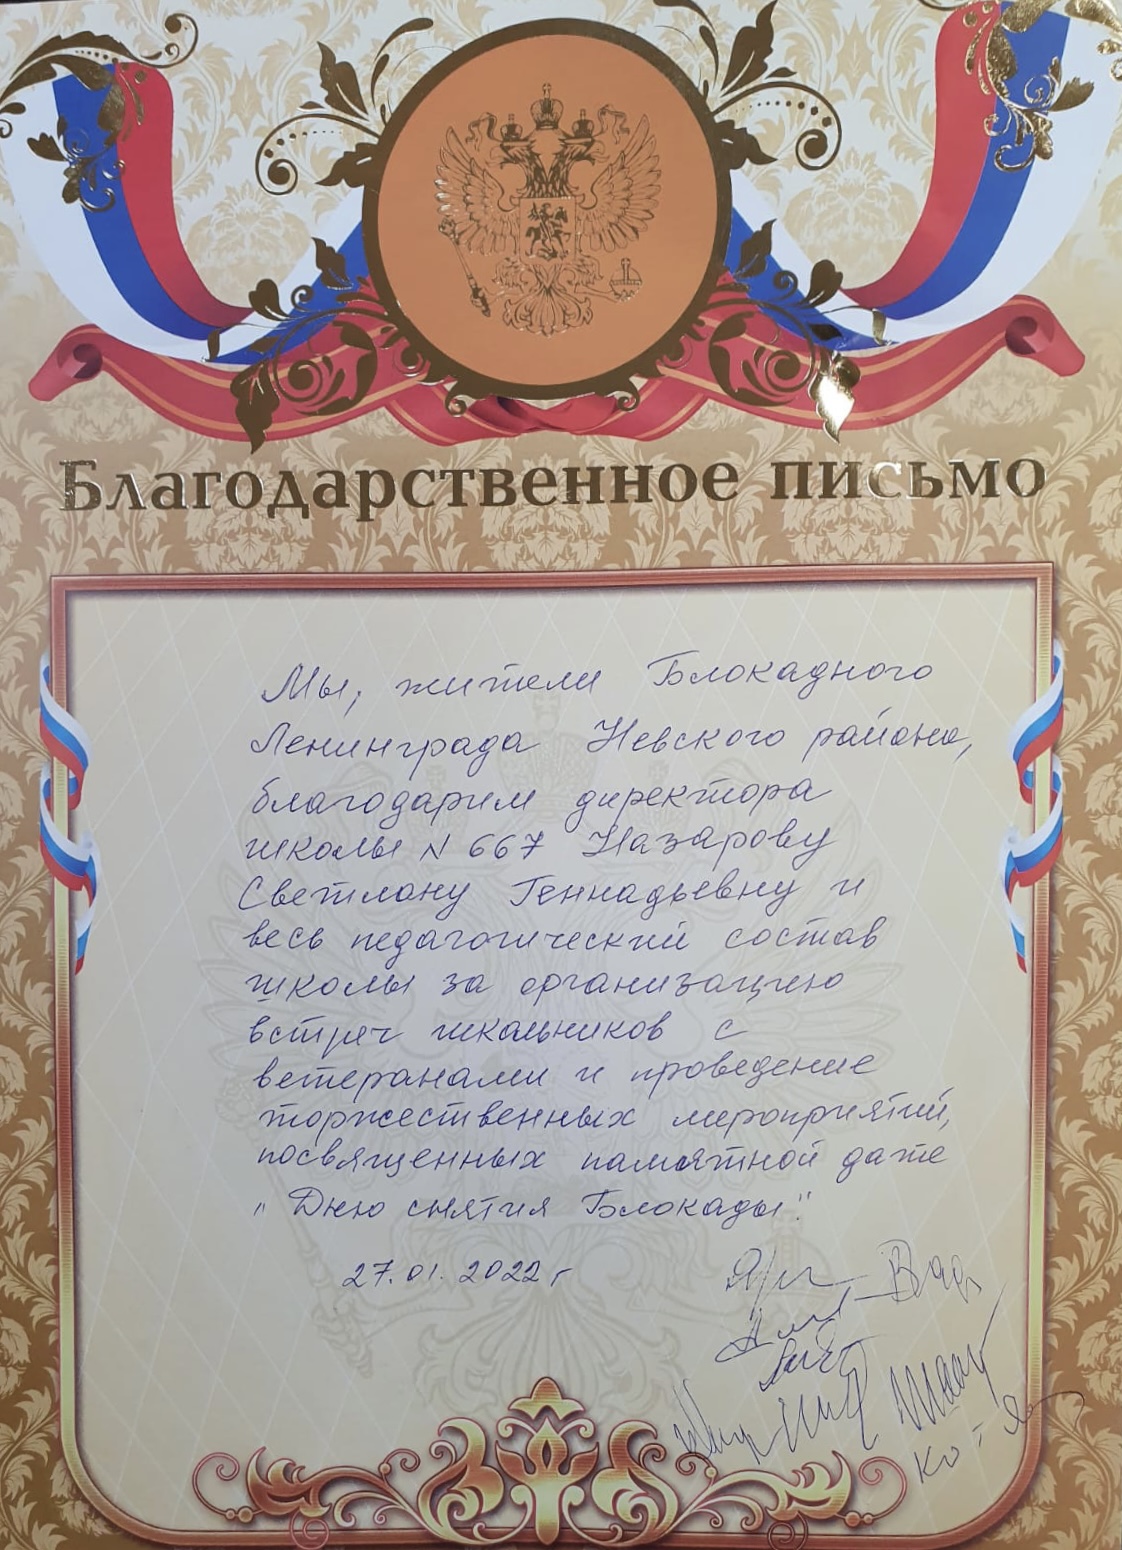 Благодарственное письмо
Мы, жители Блокадного
Ленинграда Невского района,
благодарим директора
школы N 667 Назарову
Светлану Геннадьевну и
весь педагогический состав
школы за организацию
встреч школьников с
ветеранами и проведение
торжественных мероприятий,
посвященных памятной дате
"Дню снятия Блокады".
27.01.2022 г